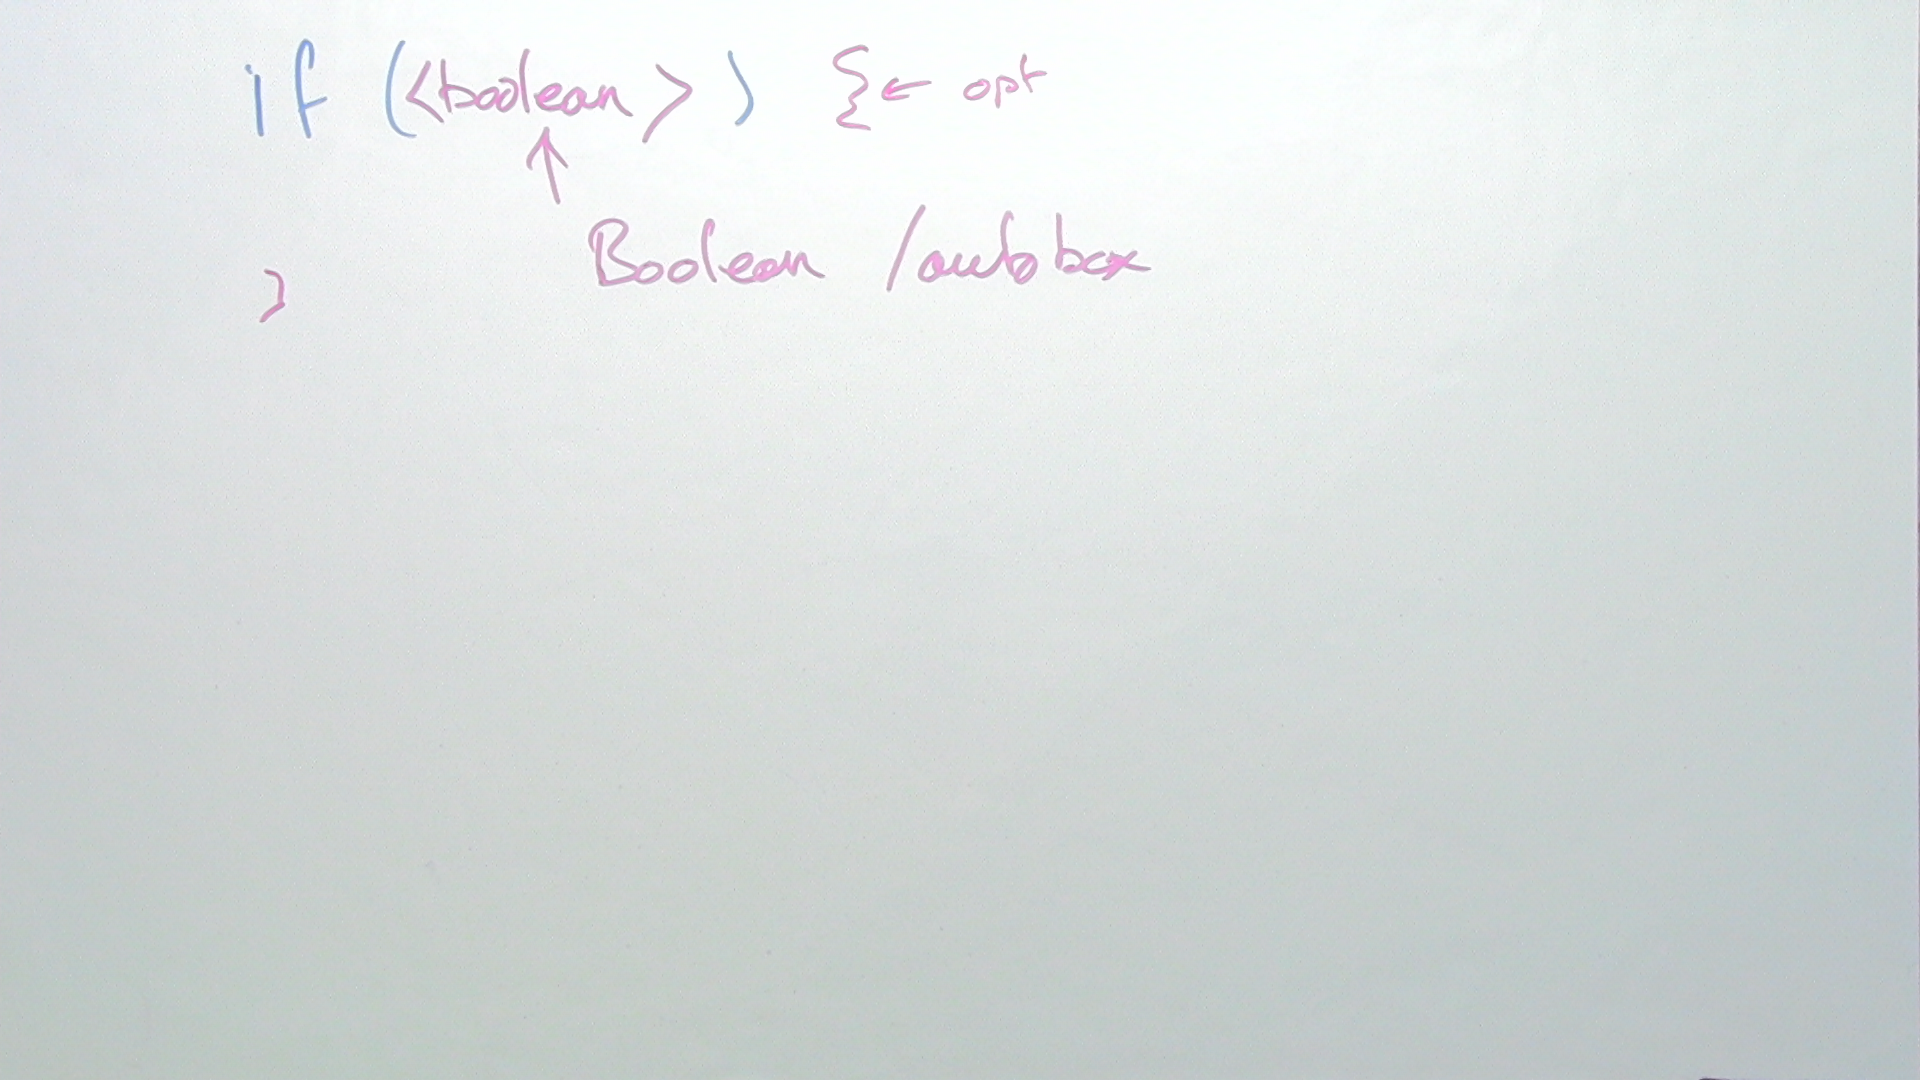 if (<boolean>) { ← opt
↑
Boolean /autobox
}